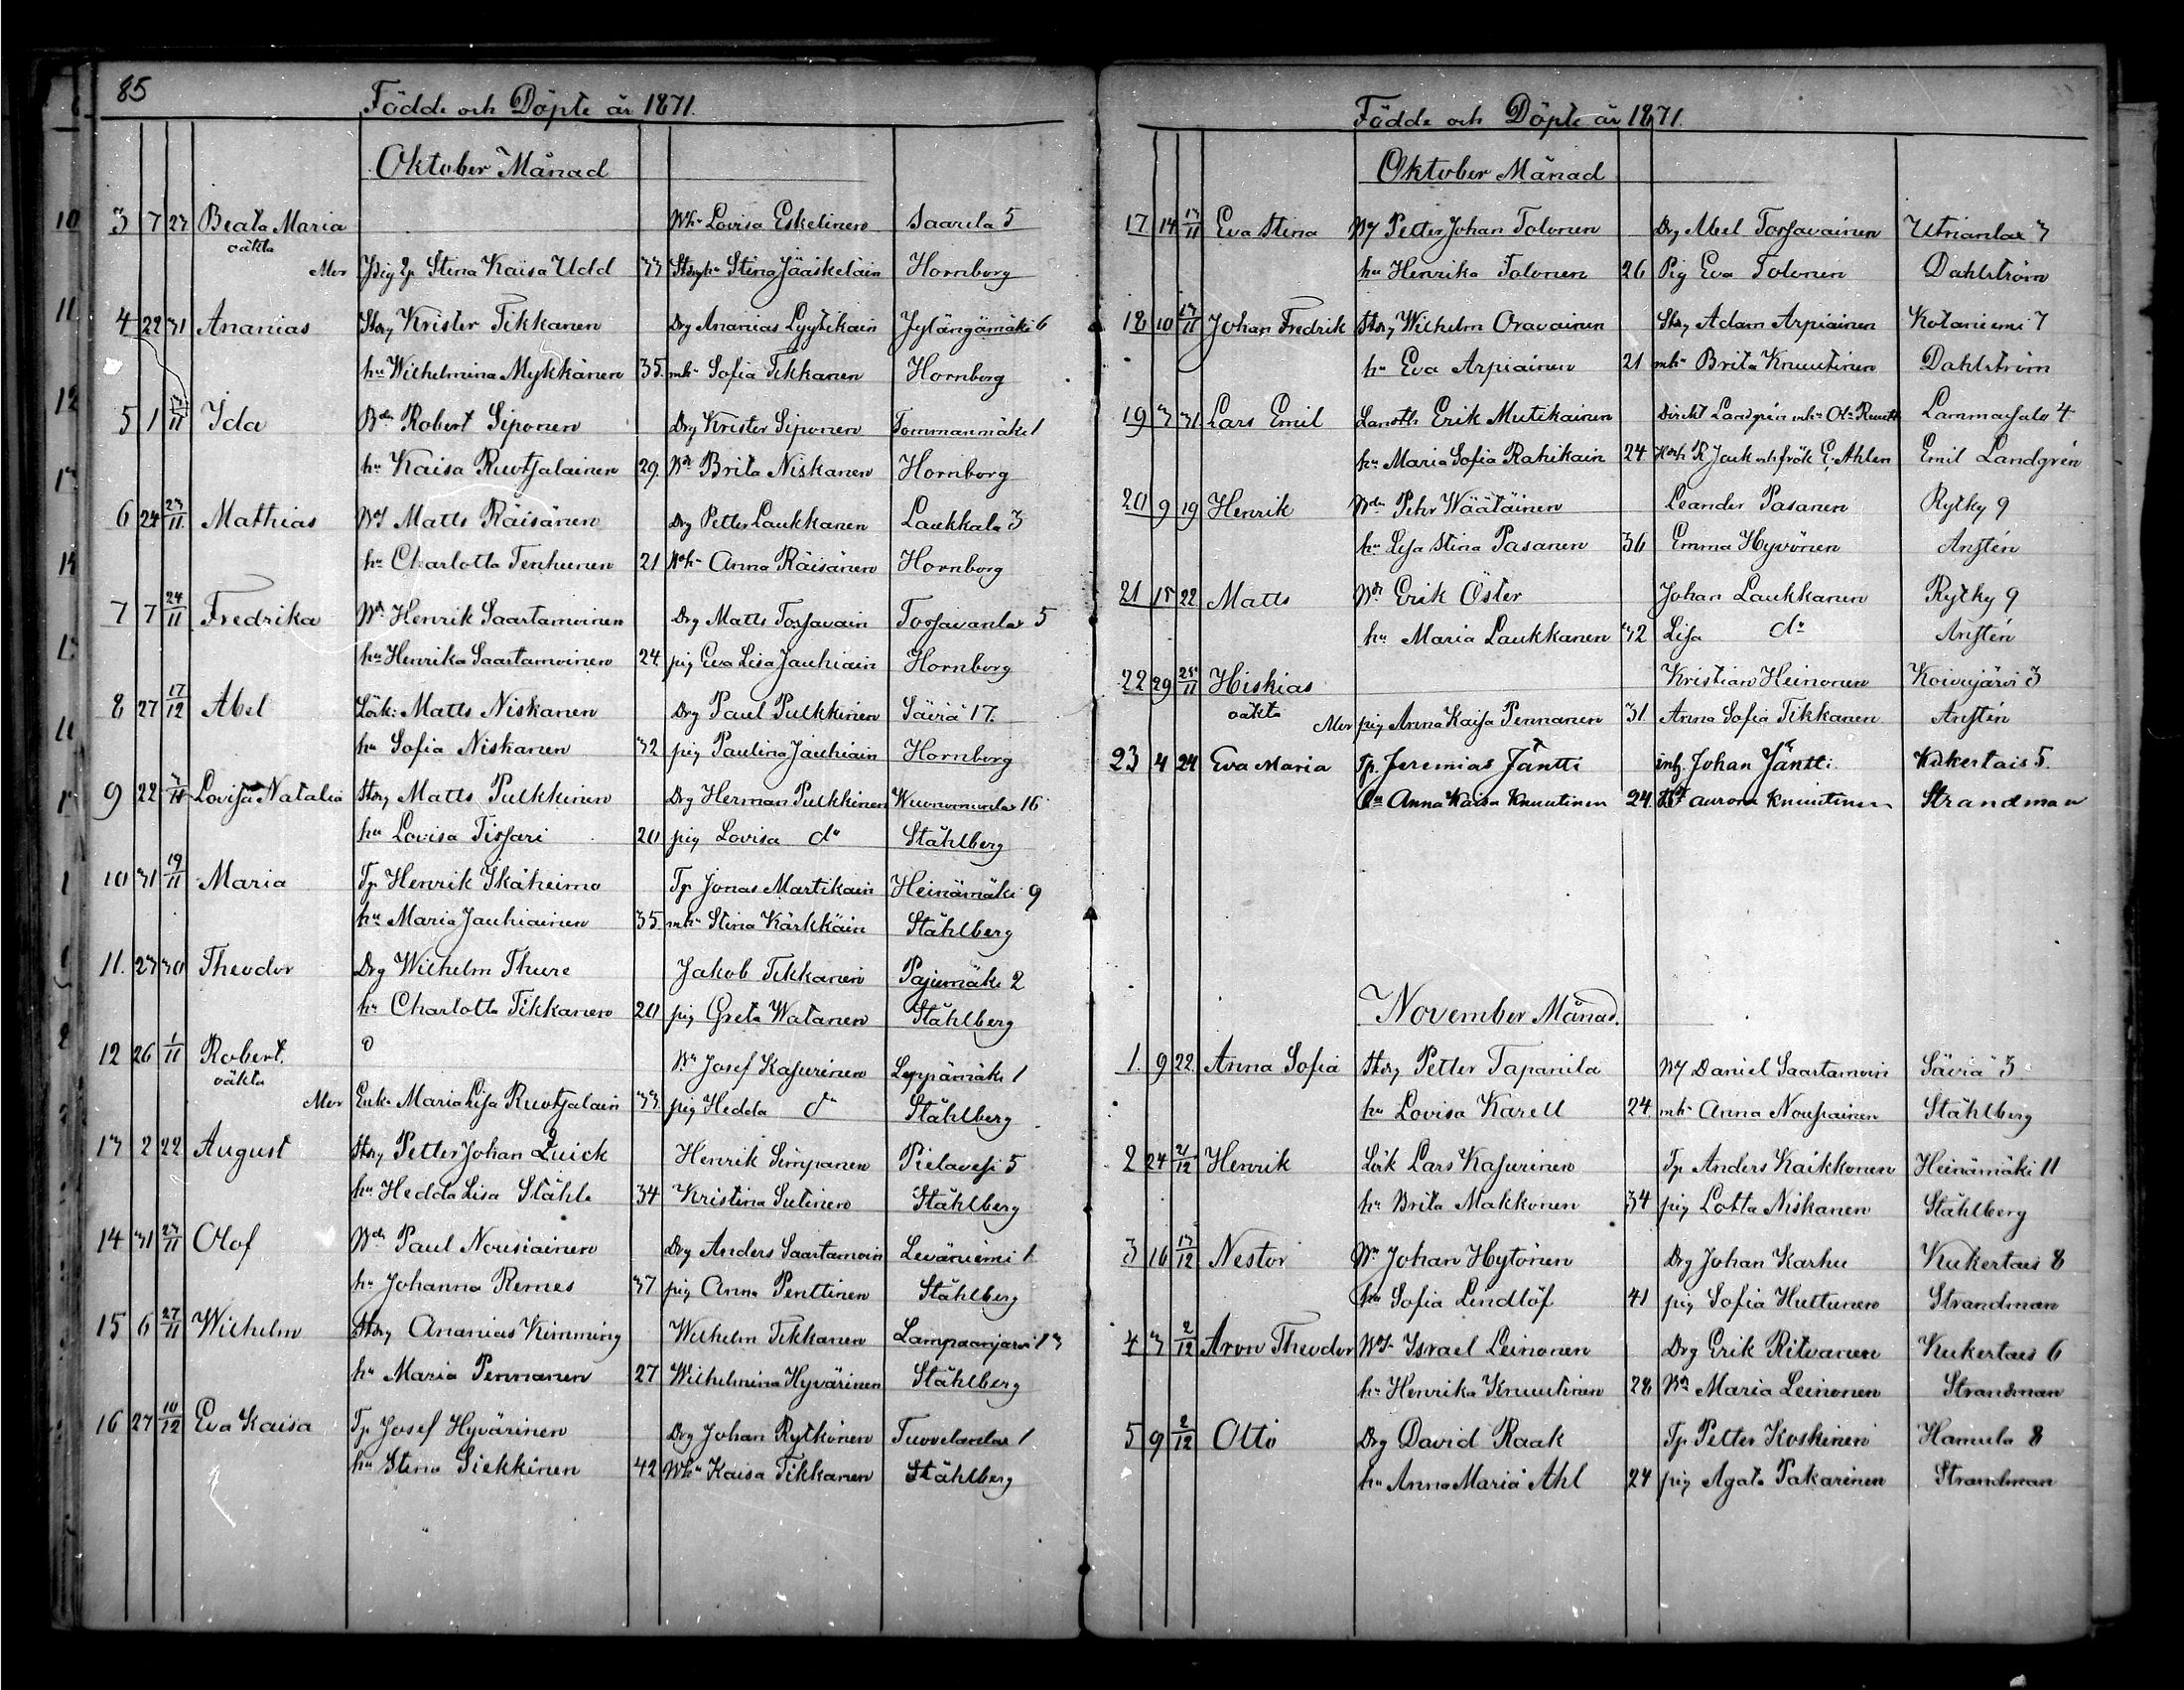 85
Födde och Döpte år 1871.
Oktober Månad
3 7 23 Beata Maria Wh: Lovisa Eskelinen Saarela 5
oäkta
Mor Pig Stina Kaisa Udd 33 Stina Jääskeläin Hornborg
4 22 31 Ananias Storp Krister Tikkanen Drg Ananias Lyytikäin Jylängömäki 6
hu Wilhelmina Mykkänen 35. mh: Sofia Tikkanen Hornborg
5 1 Ida Bdn Robert Siponen Drg Krister Siponen Tommanmäki 1
hu Kaisa Ruotsalainen 29. Brita Niskanen Hornborg
6 24 23/11 Mathias Matts Räisänen Drg Petter Laukkanen Laukkala 3
hu Charlotta Tenhunen 21 Anna Räisänen Hornborg
7 7 24/11 Fredrika Henrik Saastamoinen Drg Matts Tossavain Tossavanlax 5
hu Henrika Saastamoinen 24. pig Eva Lisa Jauhiain Hornborg
8 27 17/12 Abel Lösk: Matts Niskanen Drg Paul Pulkkinen Säviä 17.
hu Sofia Niskanen 32 pig Paulina Jauhiain Hornborg
9 22 Lovisa Natalia Matts Pulkkinen Drg Herman Pulkkinen 16
hu Lovisa Tissari 20 pig Lovisa do Ståhlberg
10 31 19/11 Maria Tp Henrik Ikäheimo Tp Jonas Martikain Heinämäki 9
hu Maria Jauhiainen 35 mh: Stina Kärkkäin Ståhlberg
11. 23 30 Theodor Drg Wilhelm Thure Jakob Tikkanen Pajumäki 2
hu Charlotta Tikkanen 20 pig Greta Watanen Ståhlberg
12 26 1/11 Robert. Josef Kasurinen Leppämäki 1
oäkta
Mor Enk: Maria Lisa Ruotsalain 33 pig Hedda do Ståhlberg
13 2 22 August Petter Johan Quick Henrik Simpanen Pielavesi 5
hu Hedda Lisa Ståhle 34 Kristina Sutinen Ståhlberg
14 31 23/11 Olof Paul Nousiainen Drg Anders Saastamoin Leväniemi 1
hu Johanna Remes 37 pig Anna Penttinen Ståhlberg
15 6 27/11 Wilhelm Ananias Kimming Wilhelm Tikkanen Lampaanjärvi 13
hu Maria Pennanen 27 Wilhelmina Hyvärinen Ståhlberg
16 27 10/12 Eva Kaisa Tp Josef Hyvärinen Drg Johan Rytkönen Tuovilanlax 1
hu Stina Siekkinen 42 Wh: Kaisa Tikkanen Ståhlberg
Födde och Döpte år 1871.
Oktober Månad
17 14 13/11 Eva Stina Petter Johan Tolonen Drg Abel Tossavainen Utrianlax 3
hu Henrika Tolonen 26 Pig Eva Tolonen Dahlström
18 10 13/11 Johan Fredrik Wilhelm Oravainen Adam Arpiainen Kotaniemi 7
hu Eva Arpiainen 21 mh: Brita Knuutinen Dahlström
19 3 31 Lars Emil Erik Mutikainen Direkt Landgrén Lammasalo 4
hu Maria Sofia Rahikain 24 E. Ahlen Emil Landgrén
20 9 19 Henrik Pehr Väätäinen Leander Pasanen Rytky 9
hu Lisa Stina Pasanen 36 Emma Hyvönen Anstén
21 15 22 Matts Erik Öster Johan Laukkanen Rytky 9
hu Maria Laukkanen 32 Lisa do Anstén
22 29 25/11 Hiskias Kristian Heinonen Koivujärvi 3
oäkta
Mor pig Anna Kaisa Pennanen 31. Anna Sofia Tikkanen Anstén
23 4 24 Eva Maria Tp. Jeremias Jäntti inh. Johan Jäntti Kukertais 5.
hu Anna Kaisa Knuutinen 24. Aurora Knuutinen Strandman
November Månad.
1. 9 22. Anna Sofia Petter Tapanila Daniel Saastamoin Säviä 3
hu Lovisa Karell 24. mh: Anna Nousiainen Ståhlberg
2 24 Henrik Lösk Lars Kasurinen Tp Anders Kaikkonen Heinämäki 11
hu Brita Makkonen 34 pig Lotta Niskanen Ståhlberg
3 16 13/12 Nestor Johan Hytönen Drg Johan Karhu Kukertais 8
hu Sofia Lindlöf 41 pig Sofia Huttunen Strandman
4 3 2/12 Aron Theodor Israel Leinonen Drg Erik Ritvanen Kukertais 6
hu Henrika Knuutinen 28 Maria Leinonen Strandman
5 9 2/12 Otto Drg David Raak Tp Petter Koskinen Hamula 8
hu Anna Maria Ahl 24 pig Agata Pakarinen Strandman